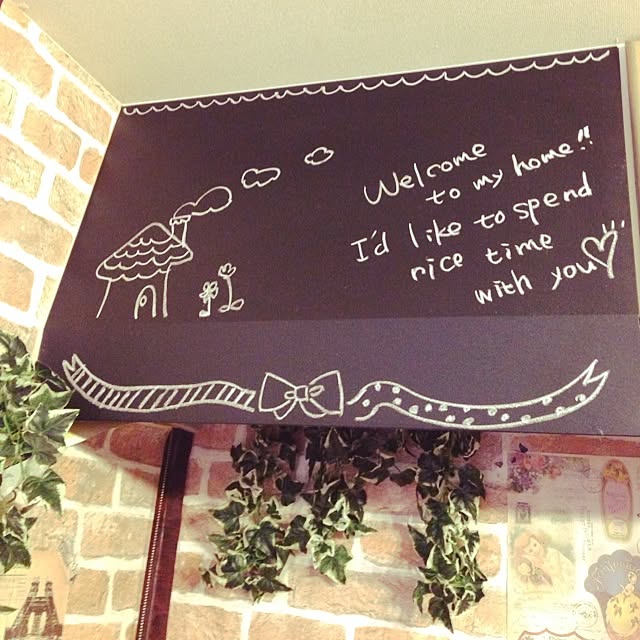 Welcome
to my home!!
I'd like to spend
nice time
with you♡